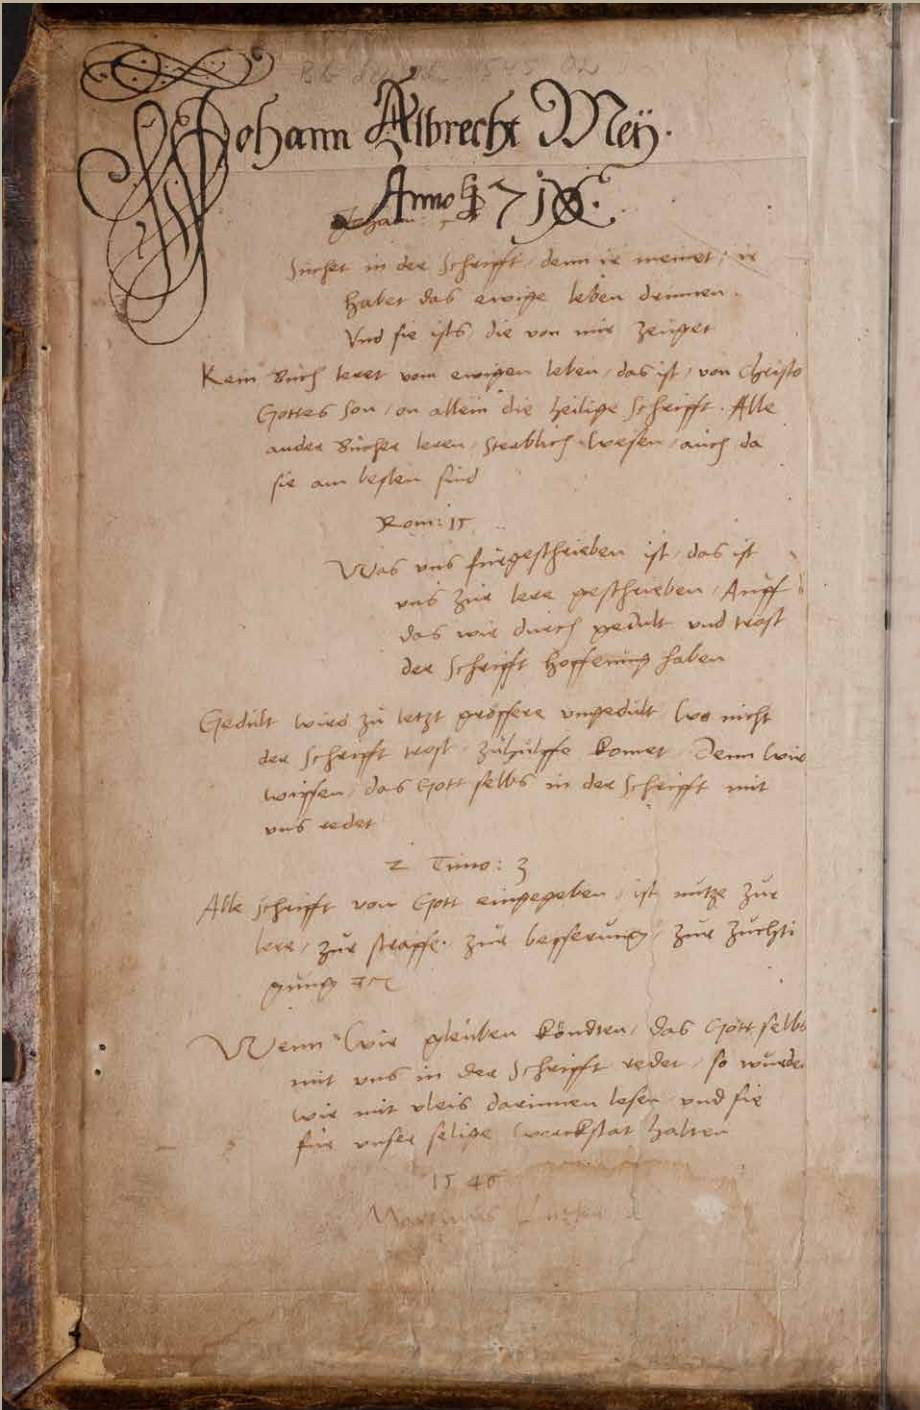 Johann Albrecht Meÿ.
Anno 1716.
Johan:
Suchet in der Schrifft, denn ir meinet, ir
habet das ewige leben drinnen.
Vnd sie ists, die von mir zeuget
Kein Buch leret vom ewigen leben, das ist, von Christo
Gottes Son, on allein die heilige Schrifft. Alle
ander Bücher leren, sterblich wesen, auch da
sie am besten sind
Rom: 15
Was vns furgeschrieben ist, das ist
vns zur lere geschrieben, Auff
das wir durch gedult vnd trost
der Schrifft hoffenung haben
Gedult wird zu letzt grössere vngedult, wo nicht
der Schrifft trost, zuhülffe komet. Denn wir
wissen, das Gott selbs in der Schrifft mit
vns redet
2 Timo: 3
Alle schrifft von Gott eingegeben, ist nütze zur
lere, zur straffe, zur besserung, zur zuchti
gung etc
Wenn wir gleuben köndten, das Gott selbs
mit vns in der Schrifft redet, so wurden
wir mit vleis darinnen lesen, vnd sie
für vnser selige werckstat halten
1546
Martinus Luther d